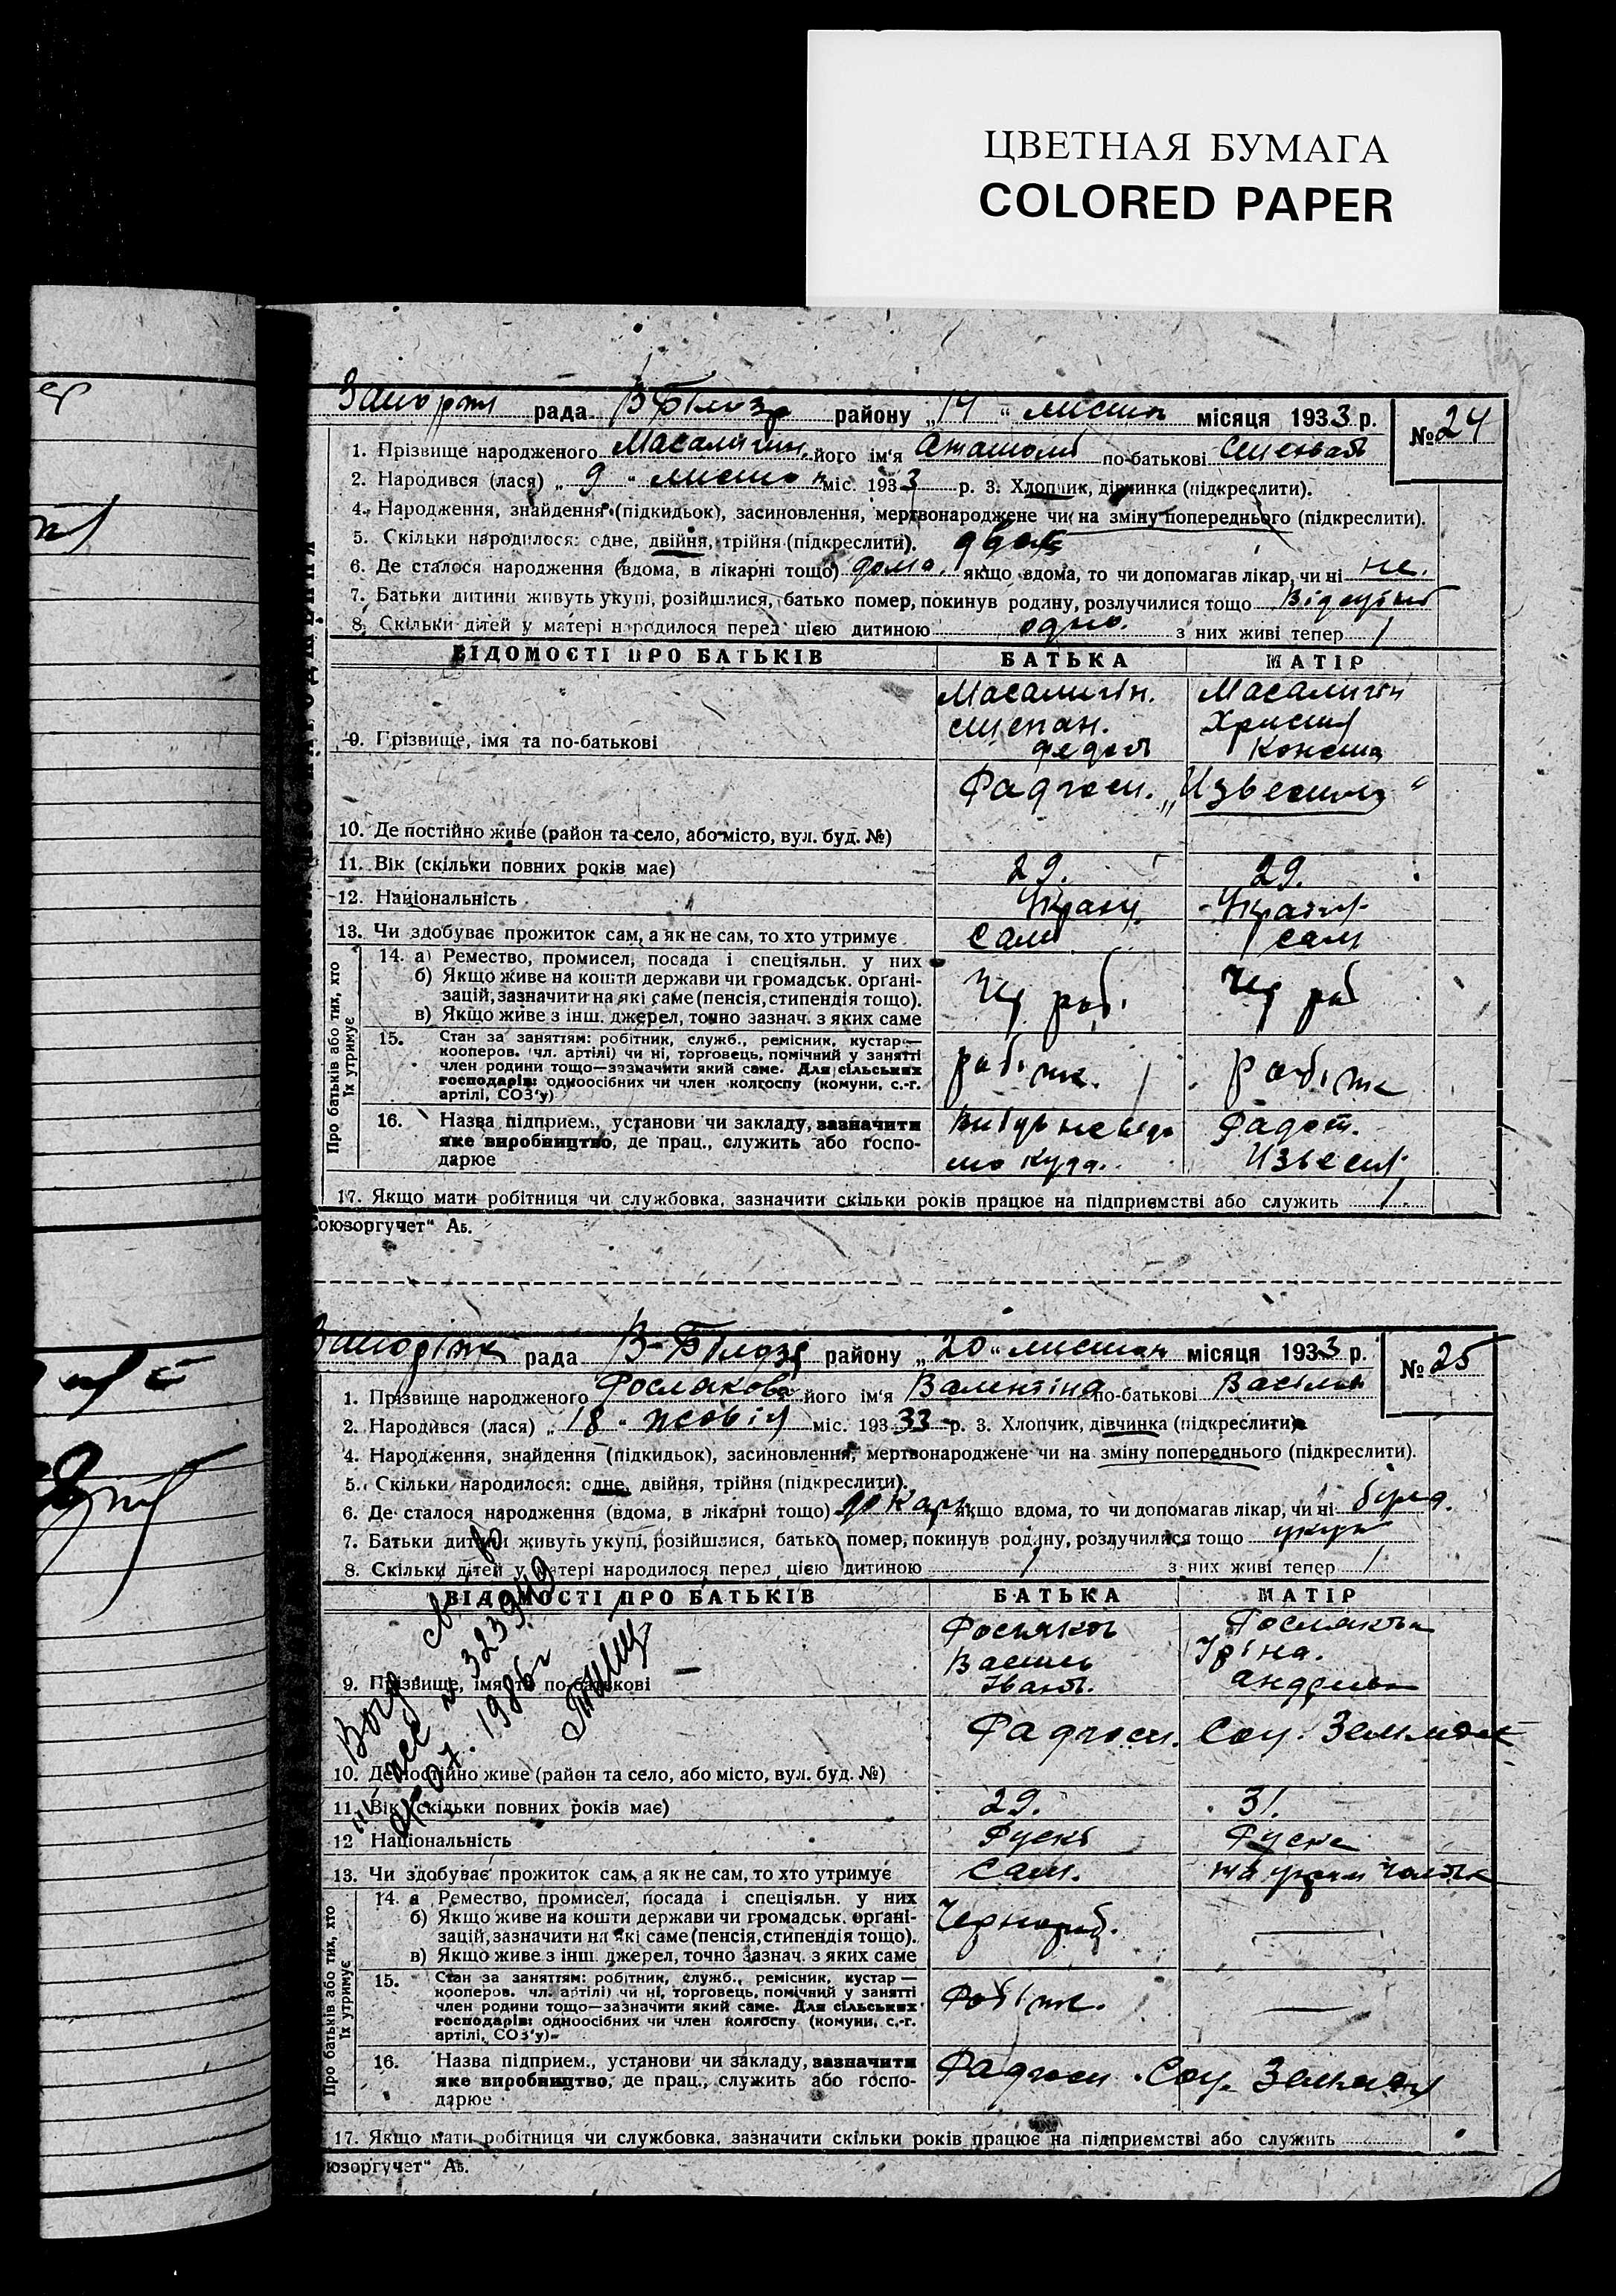 ЦВЕТНАЯ БУМАГА
COLORED PAPER
рада В-Білозр району „14“ листоп місяця 1933 р.
№ 24
1. Прізвище народженого Масалигін його ім'я по-батькові
2. Народився (лася) „9“ листоп міс. 1933 р. 3. Хлопчик, дівчинка (підкреслити).
4. Народження, знайдення (підкидьок), засиновлення, мертвонароджене чи на зміну попереднього (підкреслити).
5. Скільки народилося: одне, двійня, трійня (підкреслити).
6. Де сталося народження (вдома, в лікарні тощо) дома. якщо вдома, то чи допомагав лікар, чи ні не.
7. Батьки дитини живуть укупі, розійшлися, батько помер, покинув родину, розлучилися тощо
8. Скільки дітей у матері народилося перед цією дитиною одно. з них живі тепер 1
ВІДОМОСТІ ПРО БАТЬКІВ БАТЬКА МАТІР
Масалигін. Масалигін
степан. Христя
федот Конста
9. Прізвище, імя та по-батькові
Радгосп. „Извєстия“
10. Де постійно живе (район та село, або місто, вул. буд. №)
11. Вік (скільки повних років має) 29. 29.
12. Національність Украін. Украін.
13. Чи здобуває прожиток сам, а як не сам, то хто утримує сам сам
Про батьків або тих, хто їх утримує
14. а) Ремество, промисел, посада і спеціяльн. у них
б) Якщо живе на кошти держави чи громадськ. органі-
зацій, зазначити на які саме (пенсія, стипендія тощо).
в) Якщо живе з інш. джерел, точно зазнач. з яких саме
Чер роб. Чер роб
15. Стан за заняттям: робітник, служб., ремісник, кустар—
кооперов. (чл. артілі) чи ні, торговець, помічний у занятті
член родини тощо—зазначити який саме. Для сільських
господарів: одноосібних чи член колгоспу (комуни, с.-г.
артілі, СОЗ'у)
робітж. робітж
16. Назва підприєм., установи чи закладу, зазначити
яке виробництво, де прац., служить або госпо-
дарюе
куда. Извєст.
17. Якщо мати робітниця чи службовка, зазначити скільки років працює на підприємстві або служить 1.
оюзоргучет" Аь.
рада В-Білозр району „20“ листоп місяця 1933 р.
№ 25
1. Прізвище народженого Рослякова його ім'я Валентіна по-батькові Васіл
2. Народився (лася) „18“ жовтня міс. 19333 р. 3. Хлопчик, дівчинка (підкреслити)
4. Народження, знайдення (підкидьок), засиновлення, мертвонароджене чи на зміну попереднього (підкреслити).
5. Скільки народилося: одне, двійня, трійня (підкреслити).
6. Де сталося народження (вдома, в лікарні тощо) якщо вдома, то чи допомагав лікар, чи ні
7. Батьки дитини живуть укупі, розійшлися, батько помер, покинув родину, розлучилися тощо укупі
8. Скільки дітей у матері народилося перед цією дитиною 1 з них живі тепер 1
ВІДОМОСТІ ПРО БАТЬКІВ БАТЬКА МАТІР
Росляков Рослякова
Василь Іріна.
Іванов. андрієвн
9. Прізвище, імя та по-батькові
№ 323949
07. 1986г
Радгосп. Соц. Землероб
10. Де постійно живе (район та село, або місто, вул. буд. №)
11. Вік (скільки повних років має) 29. 31.
12 Національність Руский Руска
13. Чи здобуває прожиток сам, а як не сам, то хто утримує сам.
Про батьків або тих, хто їх утримує
14. а Ремество, промисел, посада і спеціяльн. у них
б) Якщо живе на кошти держави чи громадськ. органі-
зацій, зазначити на які саме (пенсія, стипендія тощо).
в) Якщо живе з інш. джерел, точно зазнач. з яких саме
Чернороб. —
15. Стан за заняттям: робітник, служб., ремісник, кустар —
кооперов. чл. артілі) чи ні, торговець, помічний у занятті
член родини тощо—зазначити який саме. Для сільських
господарів: одноосібних чи член колгоспу (комуни, с.-г.
артілі, СОЗ'у)
Робітж. —
16. Назва підприєм., установи чи закладу, зазначити
яке виробництво, де прац., служить або госпо-
дарюе
Радгосп Соц. Землероб
17. Якщо мати робітниця чи службовка, зазначити скільки років працює на підприємстві або служить
юзоргучет" Аь.